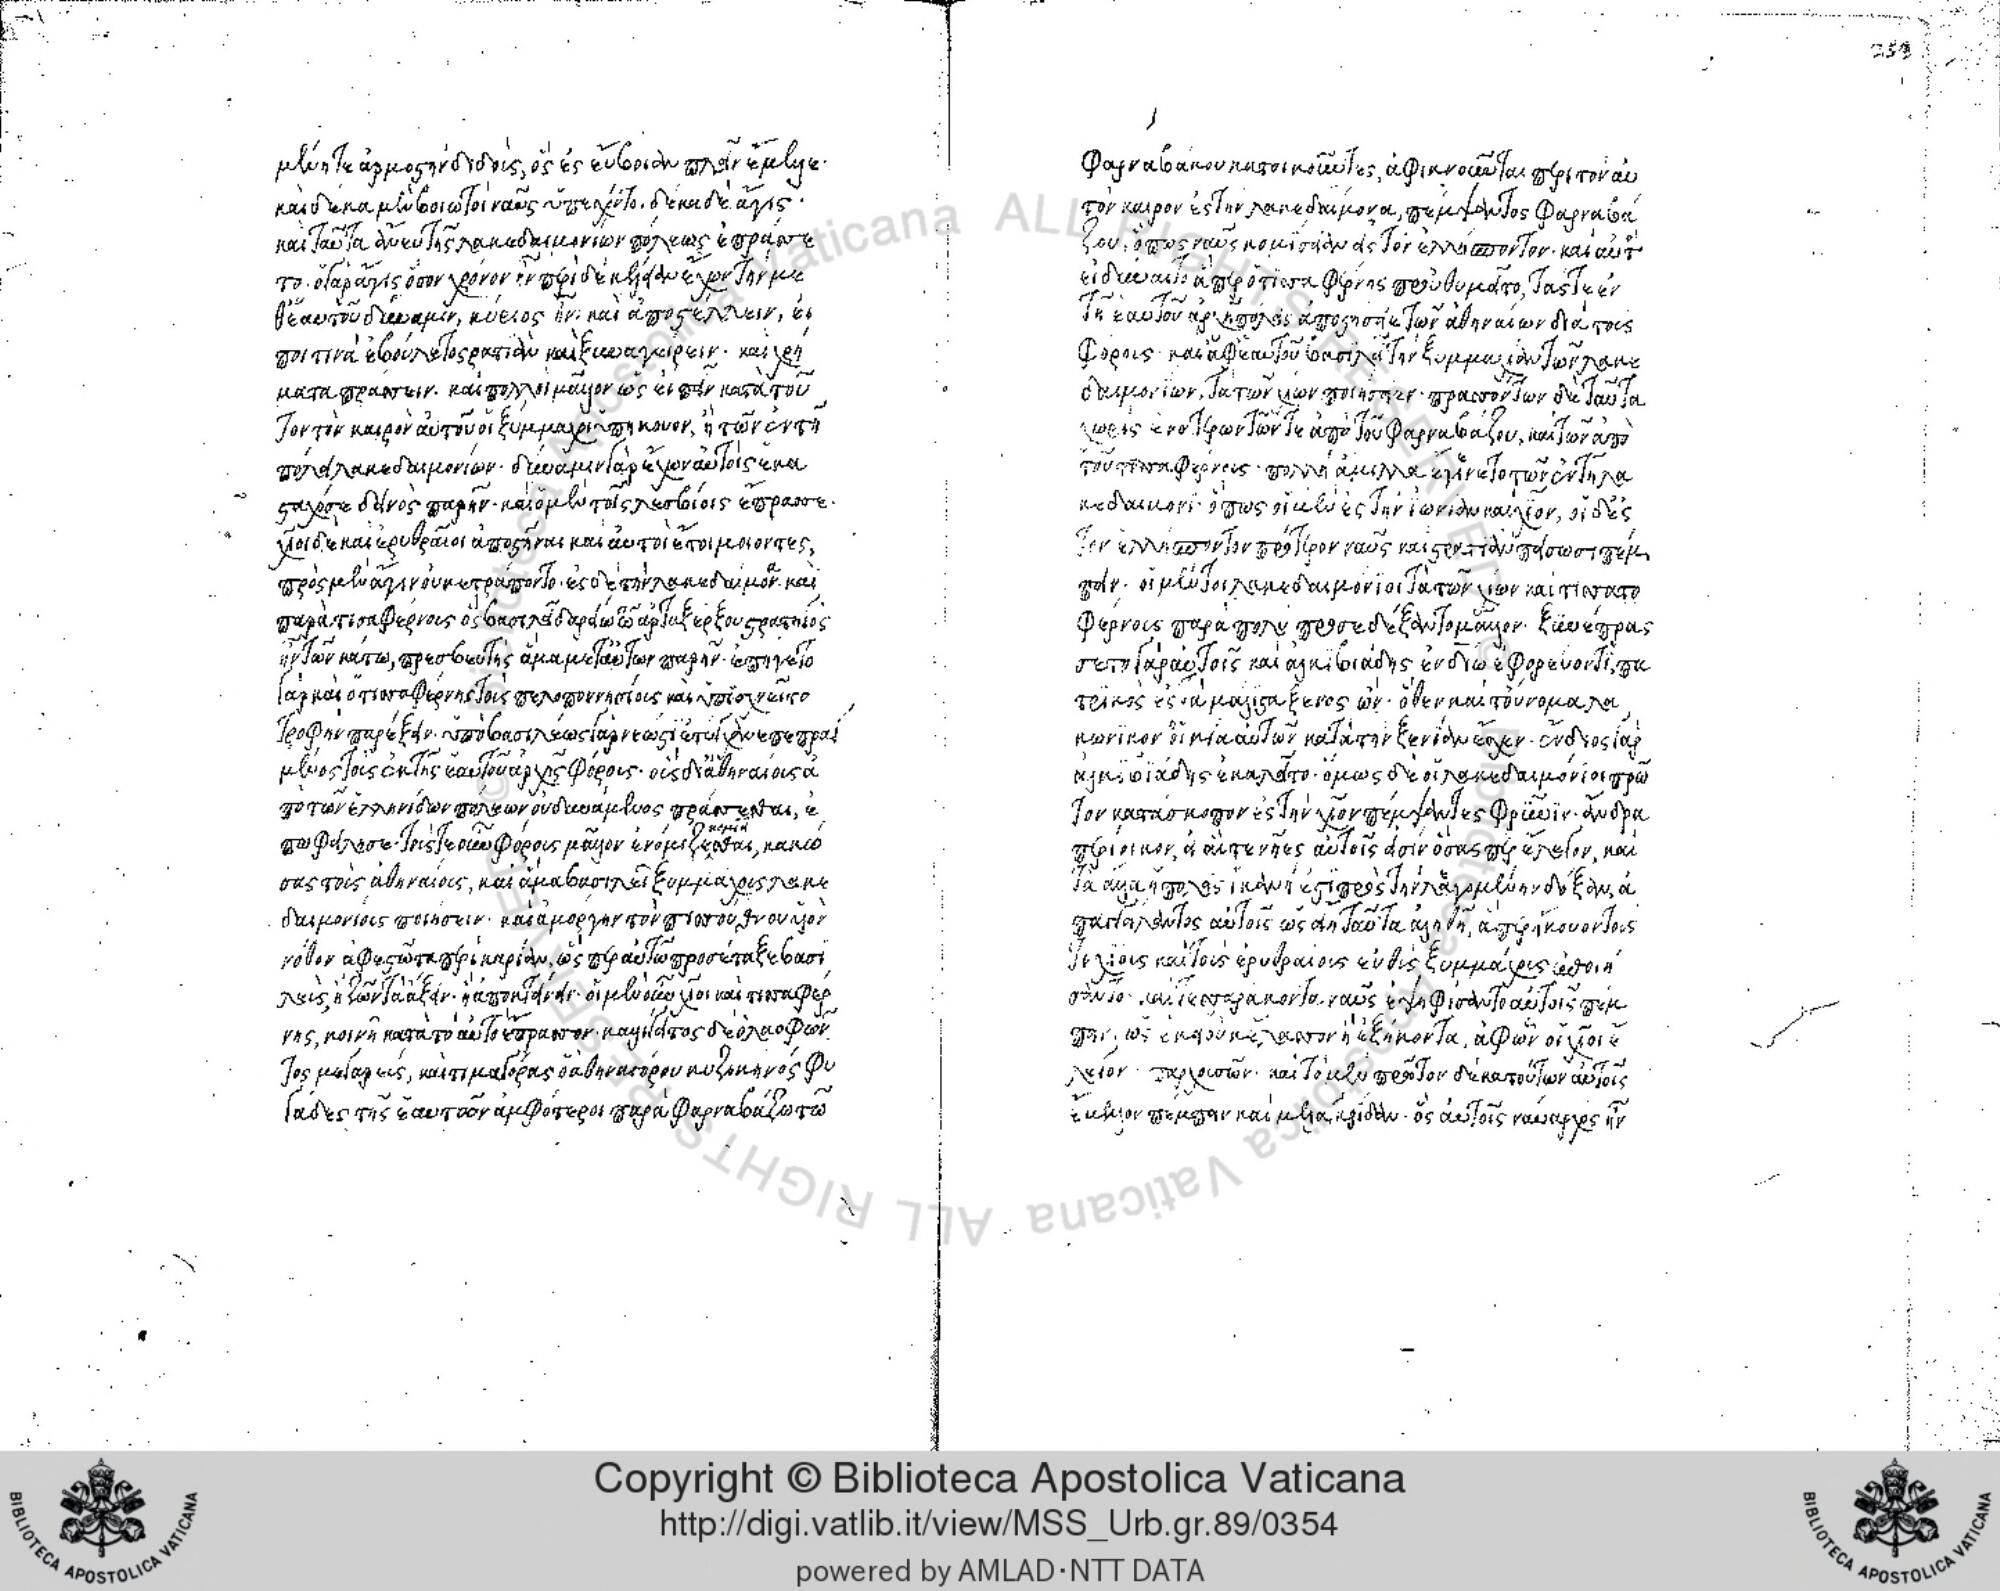 μένη τε ἁρμοστὴν διδοὺς, ὃς ἐς εὔβοιαν πλεῖν ἔμελλε·
καὶ δέκα μὲν βοιωτοὶ ναῦς ὑπέσχοντο. δέκα δὲ ἆγις·
καὶ ταῦτα ἄνευ τῆς λακεδαιμονίων πόλεως ἐπράσσε
το. ὁ γὰρ ἆγις ὅσον χρόνον ἦν περὶ δεκέλειαν ἔχων τὴν με
θ' ἑαυτοῦ δύναμιν, κύριος ἦν· καὶ ἀποστέλλειν, εἴ
ποι τινὰ ἐβούλετο στρατιὰν καὶ ξυναγείρειν· καὶ χρή
ματα πράσσειν. καὶ πολλοὶ μᾶλλον ὡς εἰπεῖν κατὰ τοῦ
τον τὸν καιρὸν αὐτοῦ οἱ ξύμμαχοι ὑπήκουον, ἢ τῶν ἐν τῇ
πόλει λακεδαιμονίων· δύναμιν γὰρ ἔχων αὐτὸς ἑκα
σταχόσε δεινὸς παρῆν· καὶ ὁ μὲν τοῖς λεσβίοις ἔπρασσε·
χῖοι δὲ καὶ ἐρυθραῖοι ἀποστῆναι καὶ αὐτοὶ ἕτοιμοι ὄντες,
πρὸς μὲν ἆγιν οὐκ ἐτράποντο· ἐς δὲ τὴν λακεδαίμονα· καὶ
παρὰ τισαφέρνους ὃς βασιλεῖ δαρείῳ τῷ ἀρταξέρξου στρατηγὸς
ἦν τῶν κάτω, πρεσβευτὴς ἅμα μετ' αὐτῶν παρῆν· ἐπήγετο
γὰρ καὶ ὁ τισσαφέρνης τοὺς πελοποννησίους καὶ ὑπισχνεῖτο
τροφὴν παρέξειν. ὑπὸ βασιλέως γὰρ νεωστὶ ἐτύγχανε πεπραγ
μένος τοὺς ἐκ τῆς ἑαυτοῦ ἀρχῆς φόρους· οὓς δι' ἀθηναίους ἀ
πὸ τῶν ἑλληνίδων πόλεων οὐ δυνάμενος πράσσεσθαι, ἐ
πωφείλησε· τούς τε οὖν φόρους μᾶλλον ἐνόμιζε κομιεῖσθαι, κακώ
σας τοὺς ἀθηναίους, καὶ ἅμα βασιλεῖ ξυμμάχους λακε
δαιμονίους ποιήσειν· καὶ ἀμόργην τὸν πισσούθνου υἱὸν
νόθον ἀφεστῶτα περὶ καρίαν, ὥσπερ αὐτῷ προσέταξε βασι
λεὺς, ἢ ζῶντα ἄξειν· ἢ ἀποκτείνειν· οἱ μὲν οὖν χῖοι καὶ τισσαφέρ
νης, κοινῇ κατὰ τὸ αὐτὸ ἔπρασσον· καλλίγειτος δὲ ὁ λαοφῶν
τος μεγαρεὺς, καὶ τιμαγόρας ὁ ἀθηναγόρου κυζικηνός φυ
γάδες τῆς ἑαυτῶν ἀμφότεροι παρὰ φαρναβάζῳ τῷ
φαρνάκου κατοικοῦντες, ἀφικνοῦνται περὶ τὸν αὐ
τὸν καιρὸν ἐς τὴν λακεδαίμονα, πέμψαντος φαρναβά
ζου, ὅπως ναῦς κομίσειαν ἐς τὸν ἑλλήσποντον· καὶ αὐτὸς
εἰ δύναιτο ἅπερ ὁ τισσαφέρνης προυθυμεῖτο, τάς τε ἐν
τῇ ἑαυτοῦ ἀρχῇ πόλεις ἀποστήσῃ τῶν ἀθηναίων διὰ τοὺς
φόρους· καὶ ἀφ' ἑαυτοῦ βασιλεῖ τὴν ξυμμαχίαν τῶν λακε
δαιμονίων, ποιήσειεν· πρασσόντων δὲ ταῦτα
χωρὶς ἑκατέρων τῶν τε ἀπὸ τοῦ φαρναβάζου, καὶ τῶν ἀπὸ
τοῦ τισσαφέρνους· πολλὴ ἅμιλλα ἐγίγνετο τῶν ἐν τῇ λα
κεδαίμονι· ὅπως οἱ μὲν ἐς τὴν ἰωνίαν καὶ χῖον, οἱ δ' ἐς
τὸν ἑλλήσποντον πρότερον ναῦς καὶ στρατιὰν πείσωσι πέμ
πειν· οἱ μέντοι λακεδαιμόνιοι τὰ τῶν χίων καὶ τισσα
φέρνους παρὰ πολὺ προσεδέξαντο μᾶλλον· ξυνέπρασ
σε γὰρ αὐτοῖς καὶ ἀλκιβιάδης ἐνδίῳ ἐφορεύοντι, πα
τρικὸς ἐς τὰ μάλιστα ξένος ὤν· ὅθεν καὶ τοὔνομα λα
κωνικὸν ἡ οἰκία αὐτῶν κατὰ τὴν ξενίαν ἔσχεν· ἔνδιος γὰρ
ἀλκιβιάδης ἐκαλεῖτο· ὅμως δὲ οἱ λακεδαιμόνιοι πρῶ
τον κατάσκοπον ἐς τὴν χῖον πέμψαντες φρῦνιν· ἄνδρα
περίοικον, εἰ αἵ τε νῆες αὐτοῖς εἰσὶν ὅσας περ ἔλεγον, καὶ
τἆλλα ἡ πόλις ἱκανή ἐστι πρὸς τὴν λεγομένην δόξαν, ἀ
παγγείλαντος αὐτοῖς ὡς εἴη ταῦτα ἀληθῆ, ἅπερ ἤκουον τούς
τε χίους καὶ τοὺς ἐρυθραίους εὐθὺς ξυμμάχους ἐποιή
σαντο. καὶ τεσσαράκοντα ναῦς ἐψηφίσαντο αὐτοῖς πέμ
πειν, ὡς ἐκεῖ οὐκ ἔλασσον ἢ ἑξήκοντα, ἀφ' ὧν οἱ χῖοι ἔ
λεγον ὑπαρχουσῶν· καὶ τὸ μὲν πρῶτον δέκα τούτων αὐτοῖς
ἔμελλον πέμπειν καὶ μελαγκρίδαν· ὃς αὐτοῖς ναύαρχος ἦν
Copyright © Biblioteca Apostolica Vaticana
http://digi.vatlib.it/view/MSS_Urb.gr.89/0354
powered by AMLAD·NTT DATA